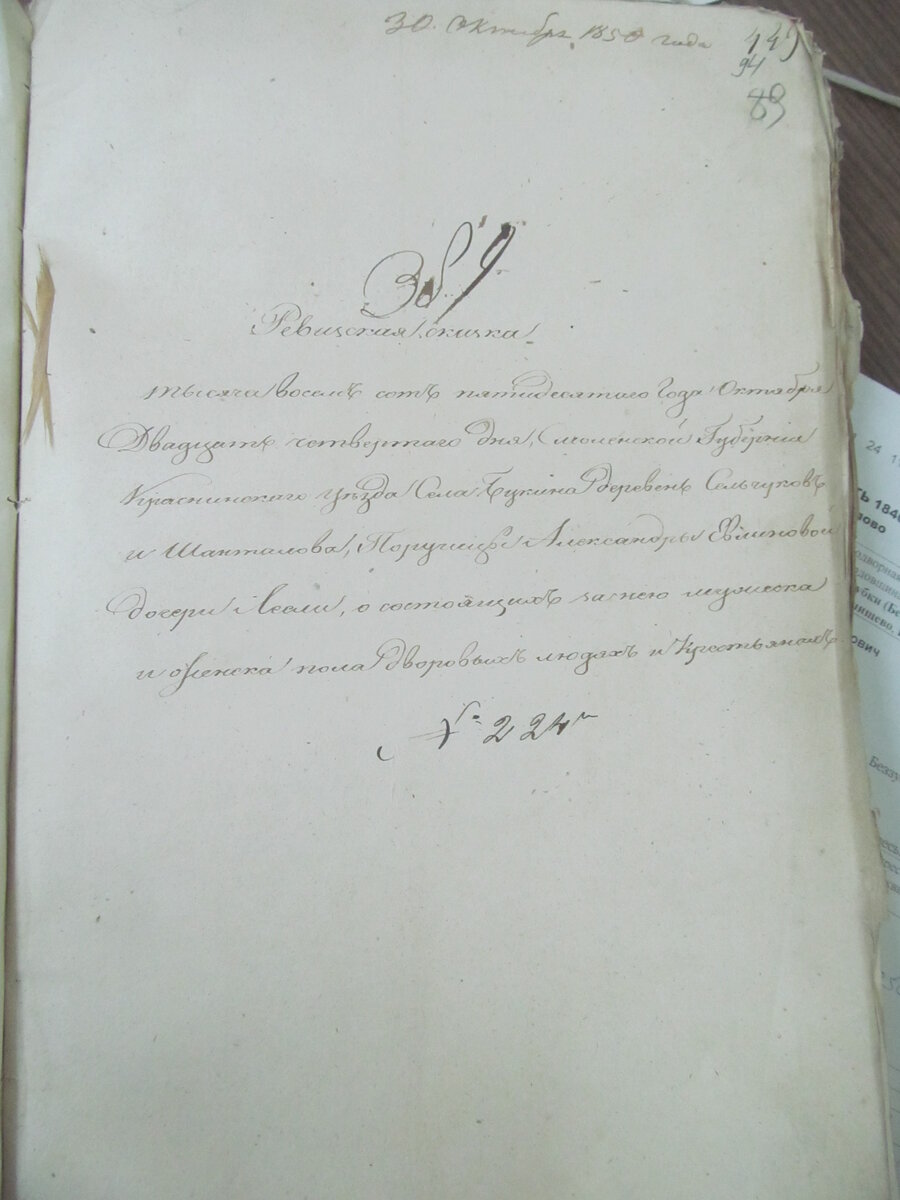 30. Октября 1850 года
449
94
89
389
Ревизская скаска
тысяча восемь сотъ пятидесятого Года Октября
Двадцать четвертаго дня, Смоленской Губерніи
Краснинскаго уѣзда Села Букина деревень Сельчуковъ
и Шанталова, Поручицы Александры
дочери о состоящихъ за нею мужеска
и женска пола дворовыхъ людяхъ и Крестьянахъ.
№ 224
24
1846
ович